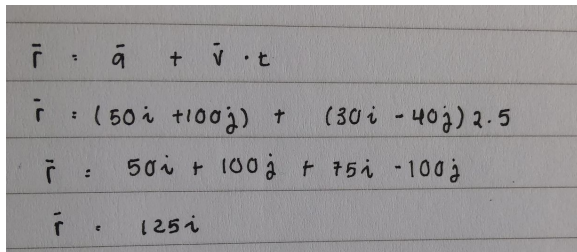 r̄ = ā + v̄ · t
r̄ = (50i + 100j) + (30i - 40j) 2.5
r̄ = 50i + 100j + 75i - 100j
r̄ = 125i